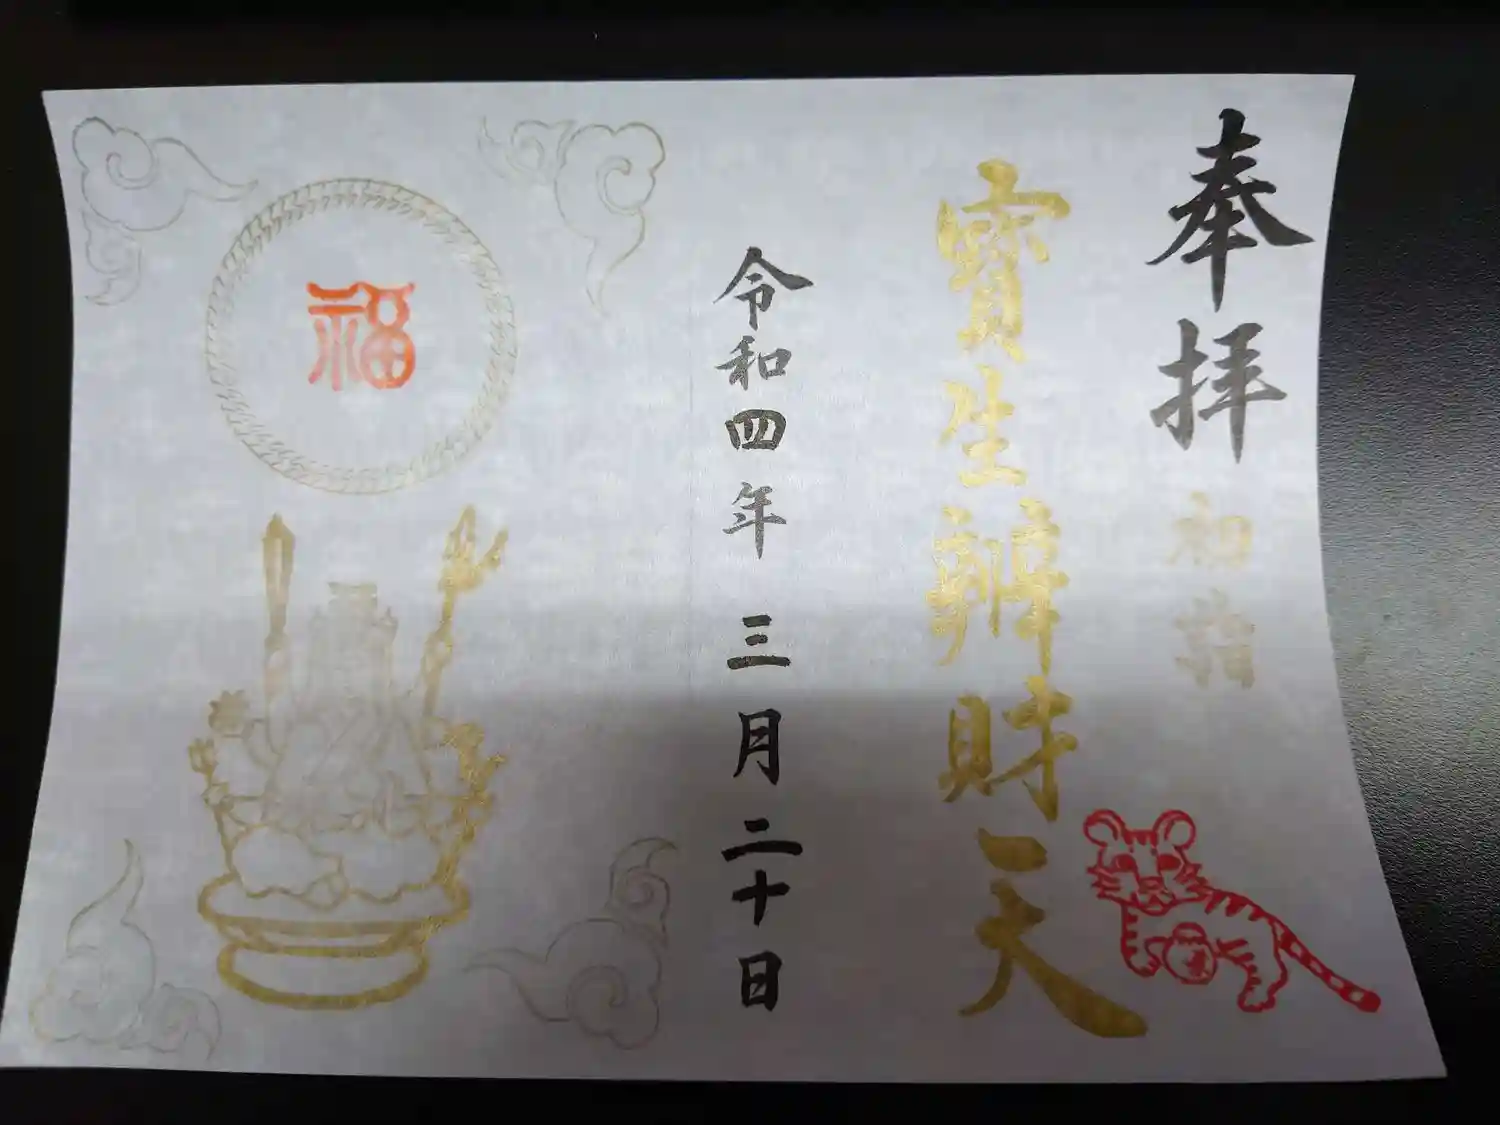 奉拝
初詣
寶生辨財天
令和四年 三月二十日
福